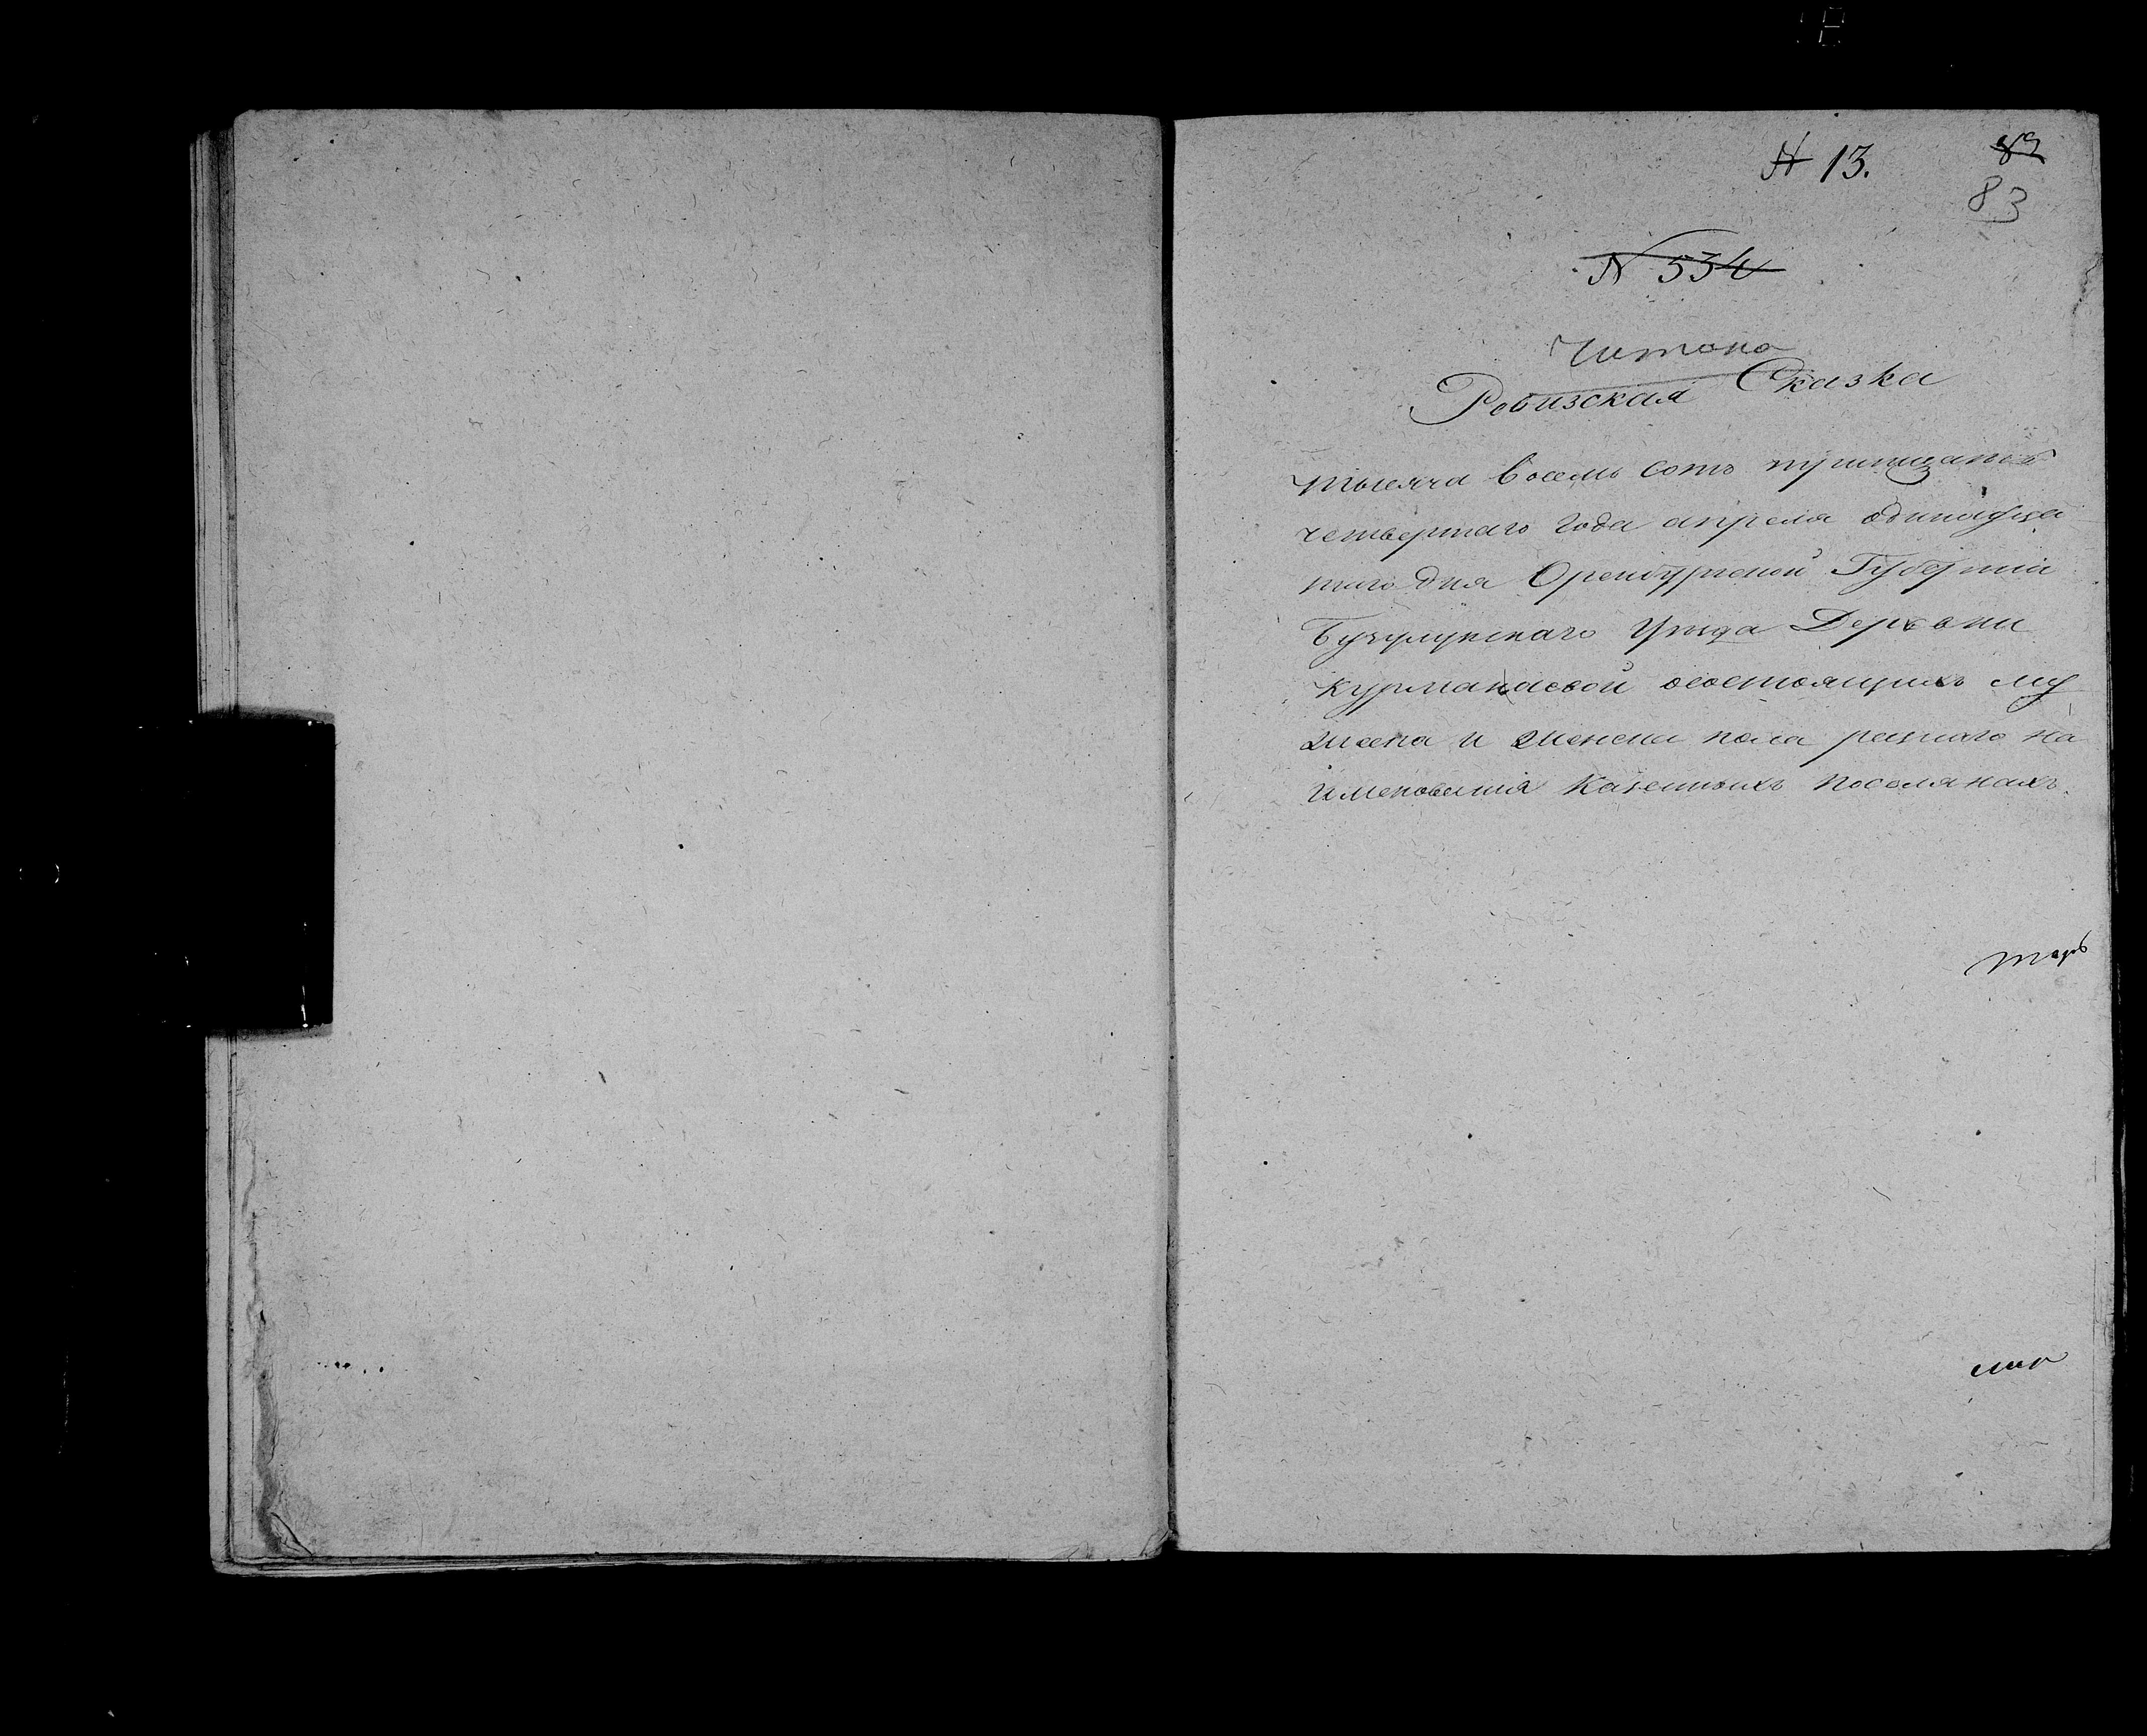 № 13.
82
83
№ 534
Читано
Ревизская Сказка
тысяча восемь сотъ тритцать
четвертаго года апреля одинадца
таго дня Оренбургской Губернии
Бузулукского уезда Деревни
Курманаевой осостоящихъ му
жеска и женска пола разнаго на
именования казенныхъ поселянахъ.